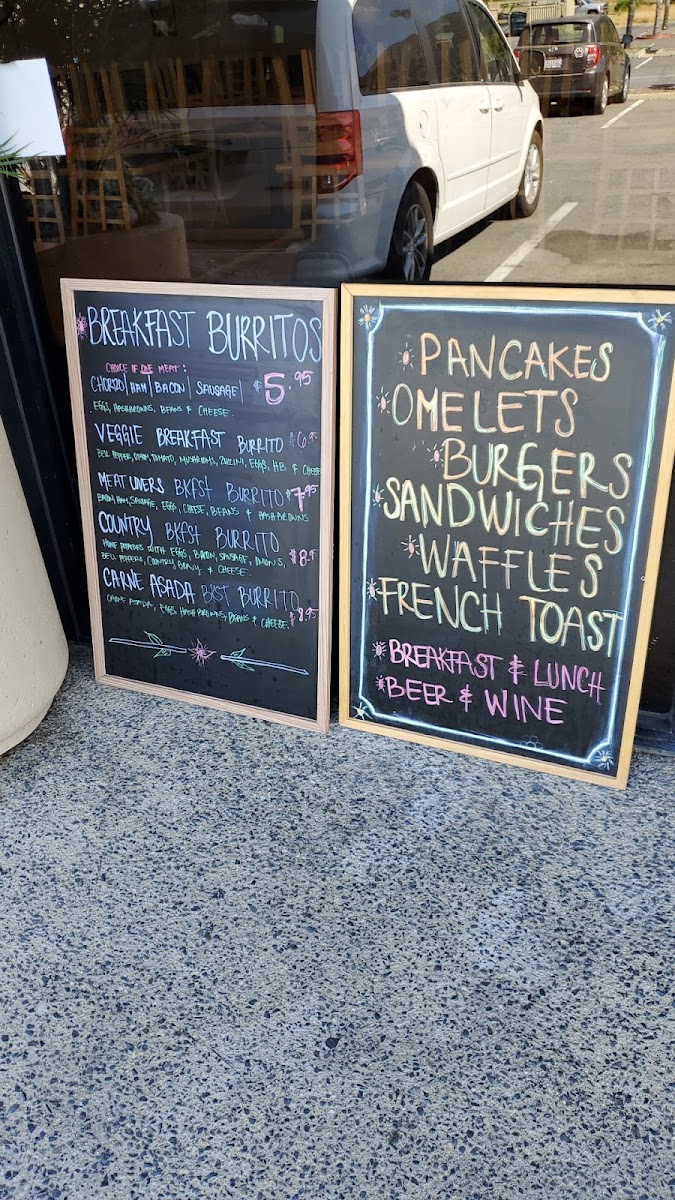 BREAKFAST BURRITOS
CHOICE OF ONE MEAT:
CHORIZO | HAM | BACON | SAUSAGE | $5.95
EGGS, HASHBROWNS, BEANS & CHEESE.
VEGGIE BREAKFAST BURRITO $6.95
BELL PEPPER, ONION, TOMATO, MUSHROOMS, EGGS, HB & CHEESE
MEAT LOVERS BKFST BURRITO $7.95
BACON, HAM, SAUSAGE, EGGS, CHEESE, BEANS & HASHBROWNS
COUNTRY BKFST BURRITO $8.95
HOME POTATOES WITH EGGS, BACON, SAUSAGE, ONIONS,
BELL PEPPERS, COUNTRY GRAVY & CHEESE.
CARNE ASADA BKST BURRITO $8.95
CARNE ASADA, EGGS, HASHBROWNS, BEANS & CHEESE.
PANCAKES
OMELETS
BURGERS
SANDWICHES
WAFFLES
FRENCH TOAST
BREAKFAST & LUNCH
BEER & WINE